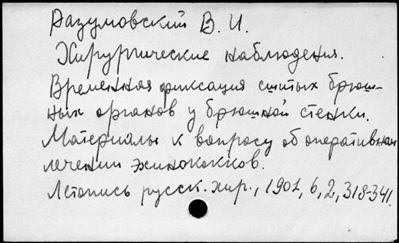 Разумовский В. И.
Хирургические наблюдения.
Временная фиксация сшитых брюш-
ных органов у брюшной стенки.
Материалы к вопросу об оперативном
лечении эхинококков.
Летопись русск. хир., 1901, 6, 2, 318-341.